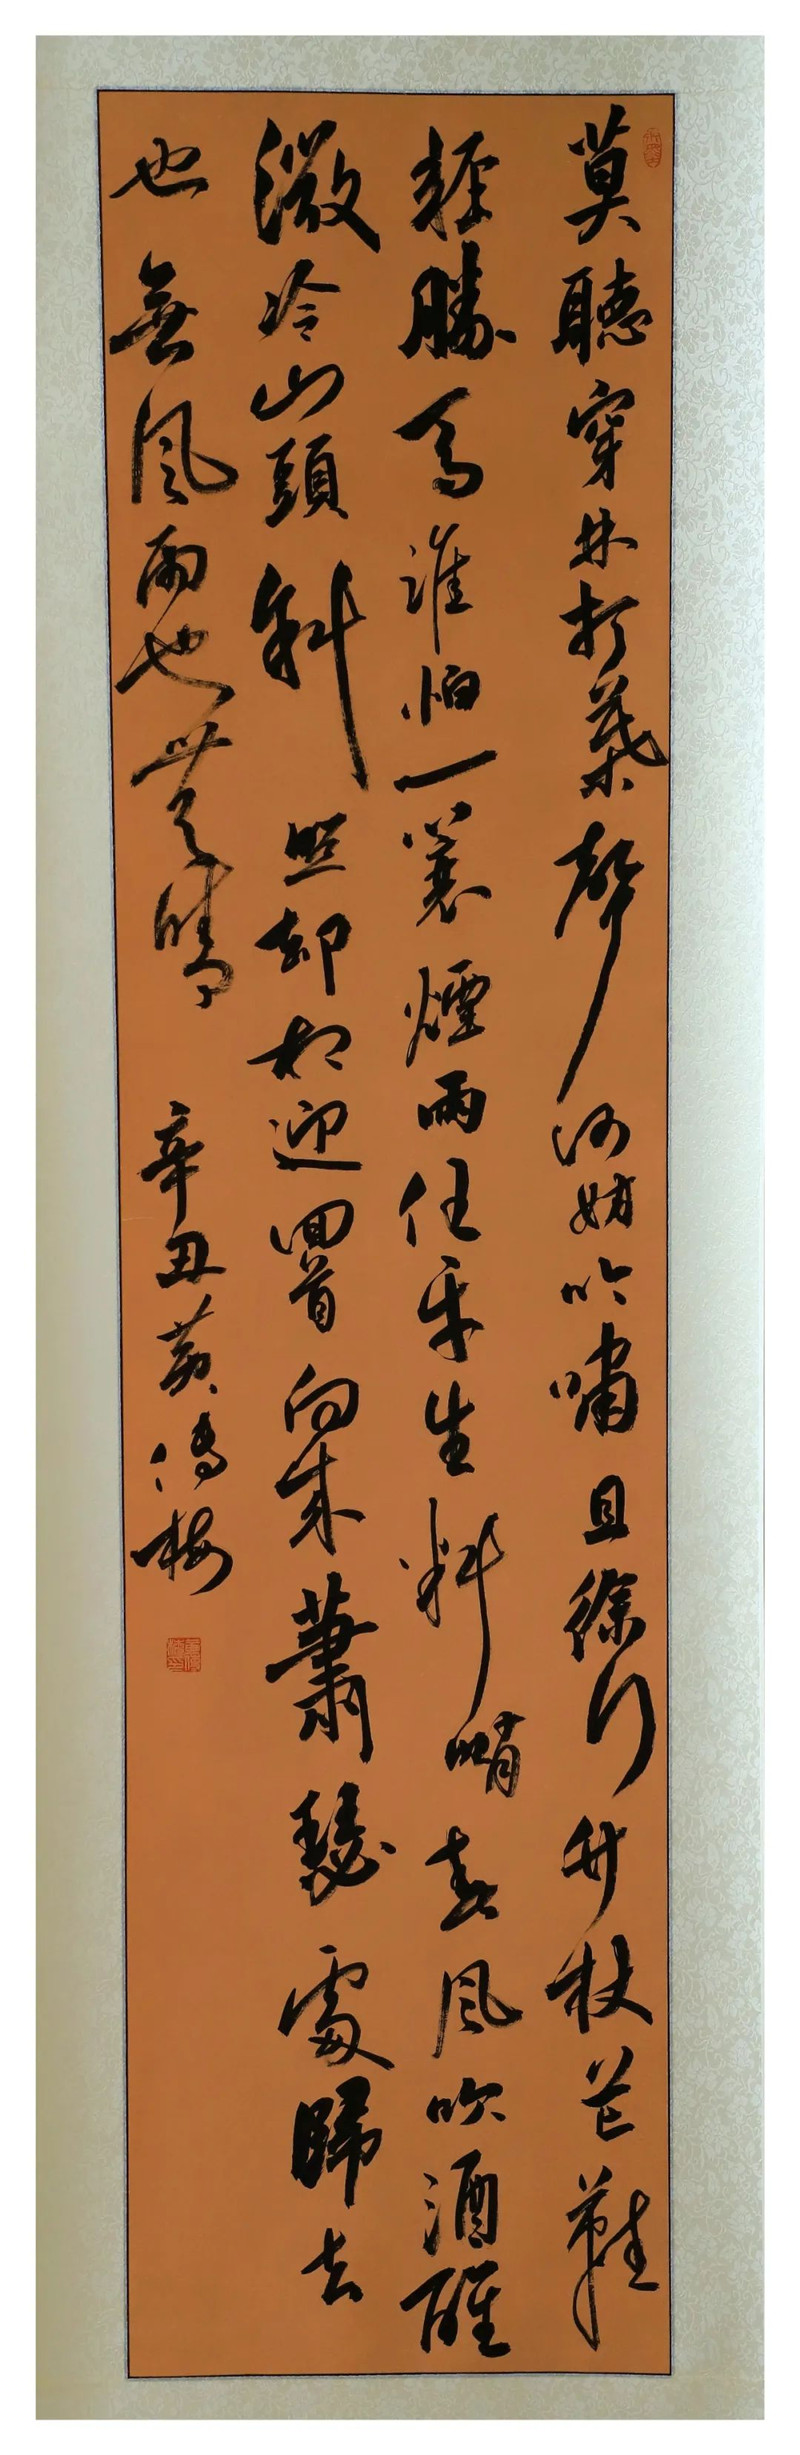 莫聽穿林打葉聲何妨吟嘯且徐行竹杖芒鞋
輕勝馬誰怕一蓑煙雨任平生料峭春風吹酒醒
微冷山頭斜照却相迎回首向來蕭瑟處歸去
也無風雨也無晴
辛丑黃傳梅